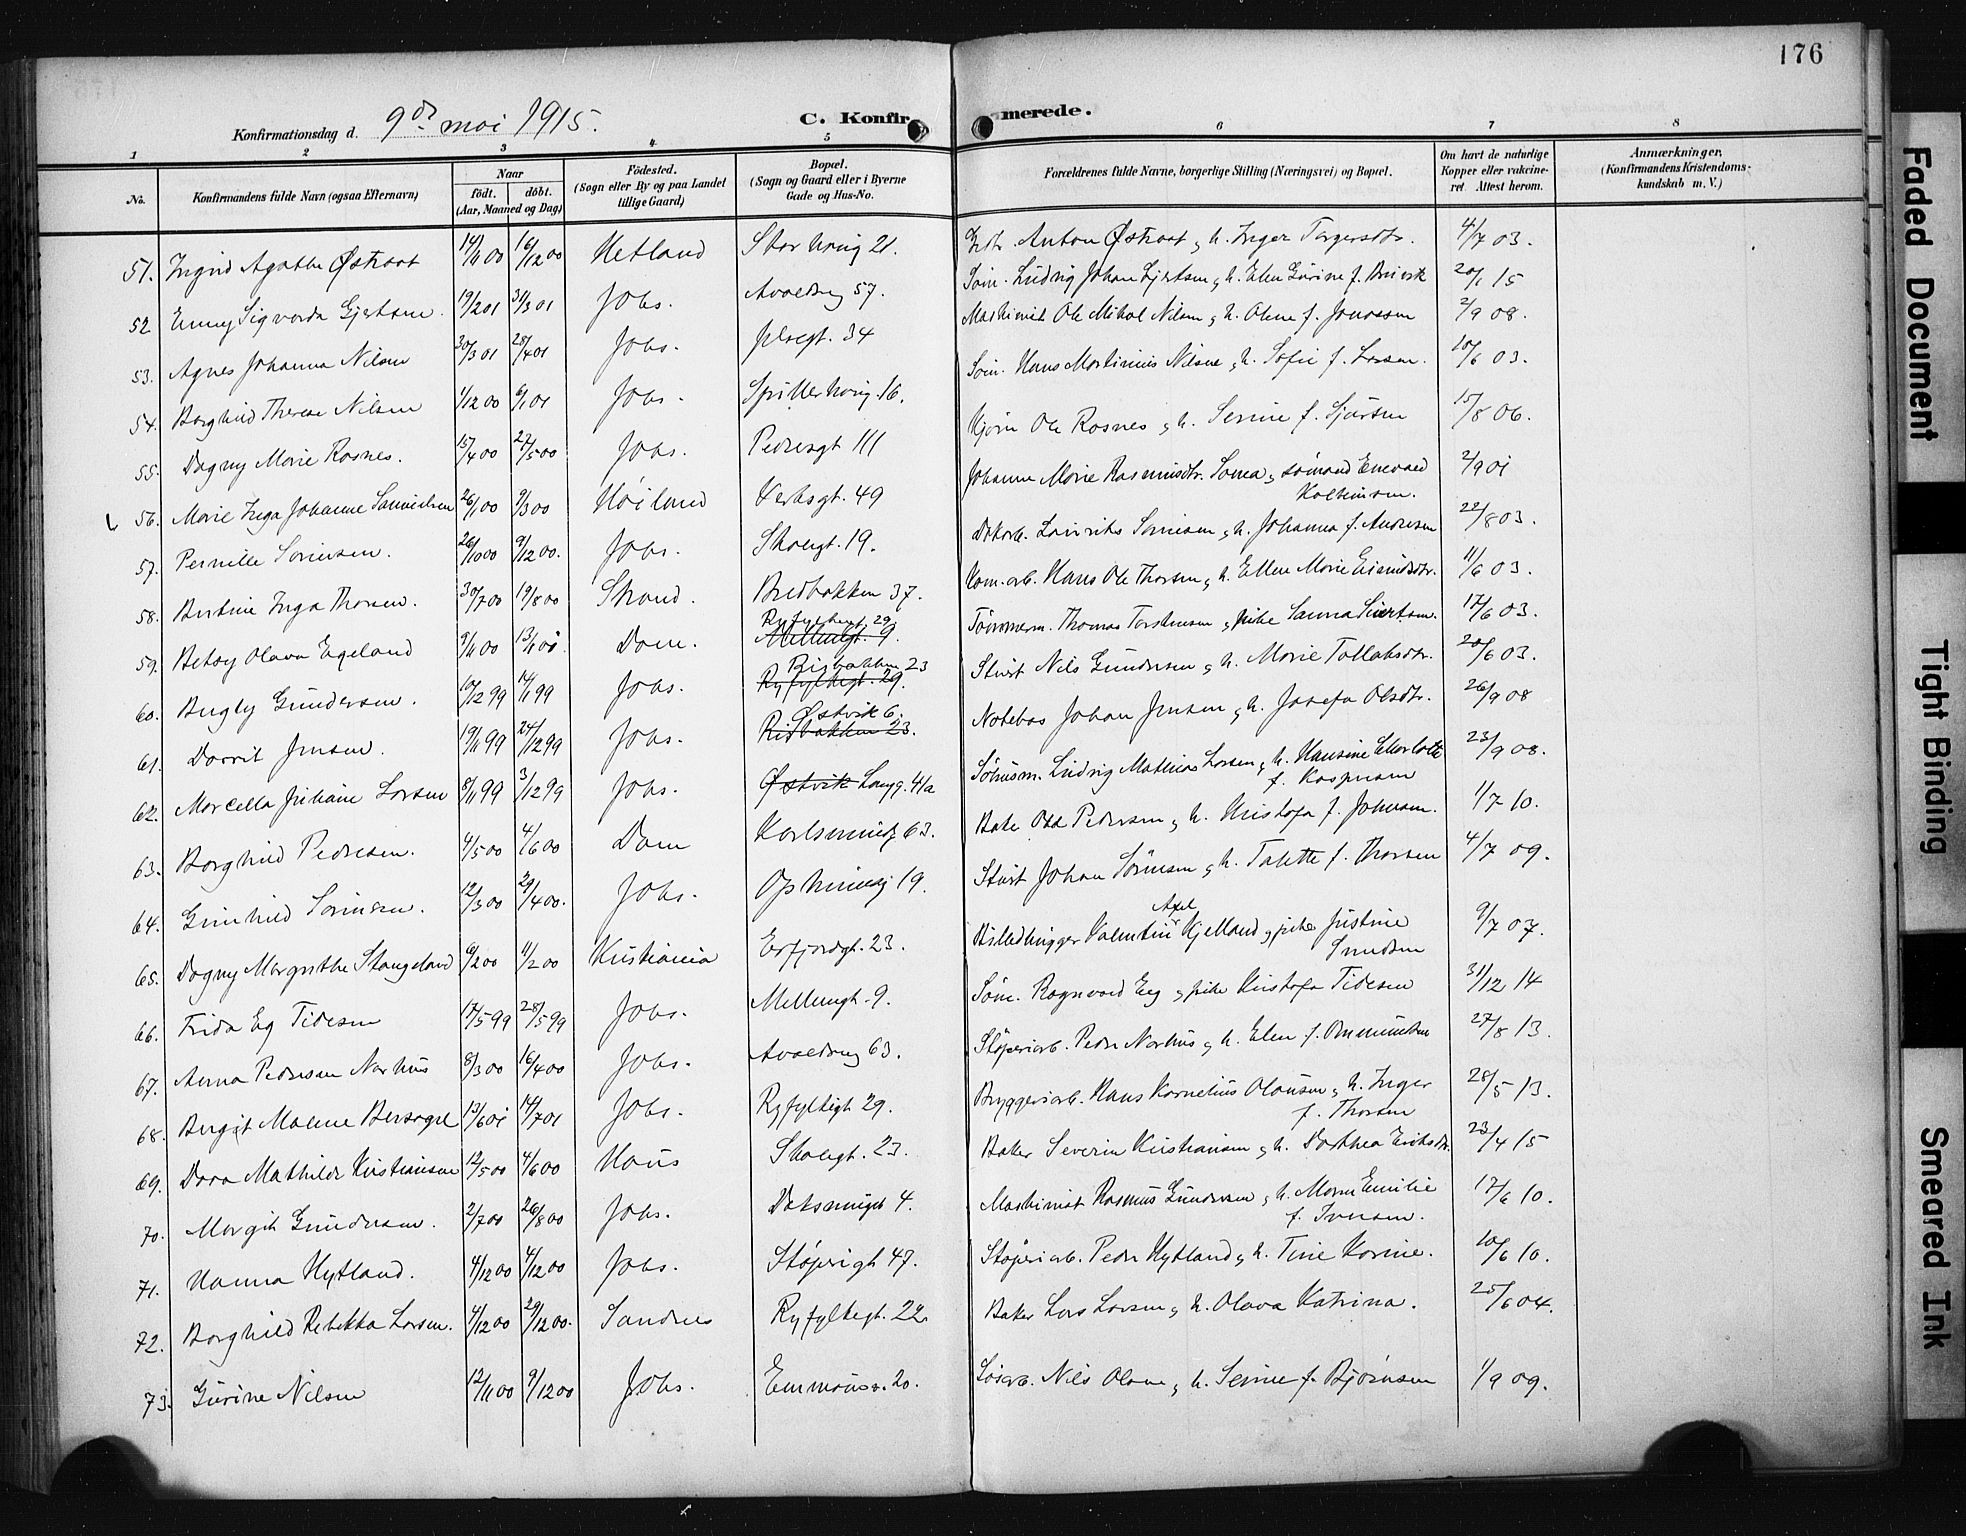 176
Konfirmationsdag d. 9de mai 1915.
C. Konfirmerede.
1 2 3 4 5 6 7 8
No.
Konfirmandens fulde Navn (ogsaa Efternavn)
Naar
födt. döbt.
(Aar, Maaned og Dag)
Födested.
(Sogn eller By og paa Landet tillige Gaard)
Bopæl.
(Sogn og Gaard eller i Byerne Gade og Hus-No.
Forældrenes fulde Navne, borgerlige Stilling (Næringsvei) og Bopæl.
Om havt de naturlige Kopper eller vakcineret. Attest herom.
Anmærkninger.
(Konfirmandens Kristendomskundskab m. V.)
51. Ingrid Agathe Østraat 14/11 00 16/12 00 Hetland Storhaug 21. Anton Østraat, h. Inger Torgersdtr. 4/7 03.
52 Enny Sigvarda Gjertsen. 19/2 01 31/3 01 Johs. Avaldsng 57. Søm. Ludvig Johan Gjertsen, h. Elen Gurine f. 20/1 15
53. Agnes Johanna Nilsen 30/3 01 28/4 01 Johs. 34 Maskinist Ole Mikal Nilsen, h. Oline f. Jonassen 2/9 08.
54. Borghild Therese Nilsen 1/12 00 6/1 01 Johs. Spilderhaug 16. Søm. Hans Martinius Nilsen, h. Sofie f. Larsen. 10/6 03.
55. Dagny Marie Rosnes. 15/4 00 27/5 00 Johs. Pedersgt 111 Ole Rosnes, h. Serine f. 15/8 06.
56. Marie Inga Johanne Samuelsen 26/1 00 9/3 00 Høiland Verksgt. 49 Johanne Marie Rasmusdtr. Soma, sømand Enevald 2/9 01
57. Pernille Sørensen. 26/10 00 9/12 00. Johs. Skolegt. 19. Laurits Sørensen, h. Johanna f. Andresen 22/8 03.
58. Bertine Inga Thorsen. 30/7 00 19/8 00 Strand. Bredbakken 37. Kom. arb. Hans Ole Thorsen, h. Ellen Marie 11/6 03.
59. Betsy Olava Egeland 9/11 00 Dom. Ryfylkegt 29. Mellemgt. 9. Tømmerm. Thomas Torstensen, pike Sanna Sivertsen. 17/6 03.
60. Bergly Gundersen. Johs. Risbakken 23 Ryfylkegt. 29. Stuert Nils Gundersen, h. Marie Tollaksdtr. 20/6 03.
61. Dorrit Jensen. 19/11 99 24/12 99 Johs. Østvik 6. Risbakken 23. Notebas Johan Jensen, h. Josefa Olsdtr. 26/9 08
62. Marcella Juliane Larsen 8/11 99 3/12 99 Johs. Østvik Langg. 41a Ludvig Mathias Larsen, h. Hansine Charlotte 23/9 08.
f. Kaspersen
63. Borghild Pedersen. 4/5 00 4/6 00 Dom Karlsmindg 63. Bake Odd Pedersen, h. Kristofa f. Johnsen. 1/7 10.
64. Gunhild Sørensen. 12/3 00 29/4 00. Johs. Opheimsg 19. Stuert Johan Sørensen, h. Talette f. Thorsen 4/7 09.
65. Dagny Margrethe Stangeland 6/2 00 11/2 00 Kristiania Erfjordgt. 23. Billedhugger Valentin Axel Kjelland, pike Justine 9/7 07.
66. Frida Eeg Tidesen 17/5 99 28/5 99 Johs. Mellemgt. 9. Søm. Ragnvald Eeg, pike Kristofa Tidesen 31/12 14
67. Anna Pedersen Norhus 8/3 00 16/4 00 Johs. Avaldsng 63. Støperiarb. Peder Norhus, h. Elen f. Ommundsen 27/8 13.
68. Birgit Malene Bersagel 13/6 01 14/7 01 Johs. Ryfylkegt 29. Bryggeriarb. Hans Kornelius Olausen, h. Inger 28/5 13.
f. Thorsen
69. Dora Mathilde Kristiansen 12/5 00 4/6 00 Haus Skolegt. 23. Baker Severin Kristiansen, h. Dorthea Eriksdtr. 23/4 15
70. Margit Gundersen. 2/7 00 26/8 00 Johs. Doksmugt 4. Maskinist Rasmus Gundersen, h. Maren Emilie 17/6 10.
f. Iversen.
71. Hanna Hytland. 4/12 00 4/12 00 Johs. Støperigt 47. Støperiarb. Peder Hytland, h. Tine Karine. 10/6 10.
72. Borghild Rebekka Larsen. 4/12 00 29/12 00. Sandnes Ryfylkegt. 22. Baker Lars Larsen, h. Olava Katrina. 25/6 04.
73. Gurine Nilsen 12/11 00 9/12 00 Johs. Emmausv. 20. Nils Olsen, h. Serine f. Bjørnsen 1/9 09.
Faded Document
Tight Binding
Smeared Ink